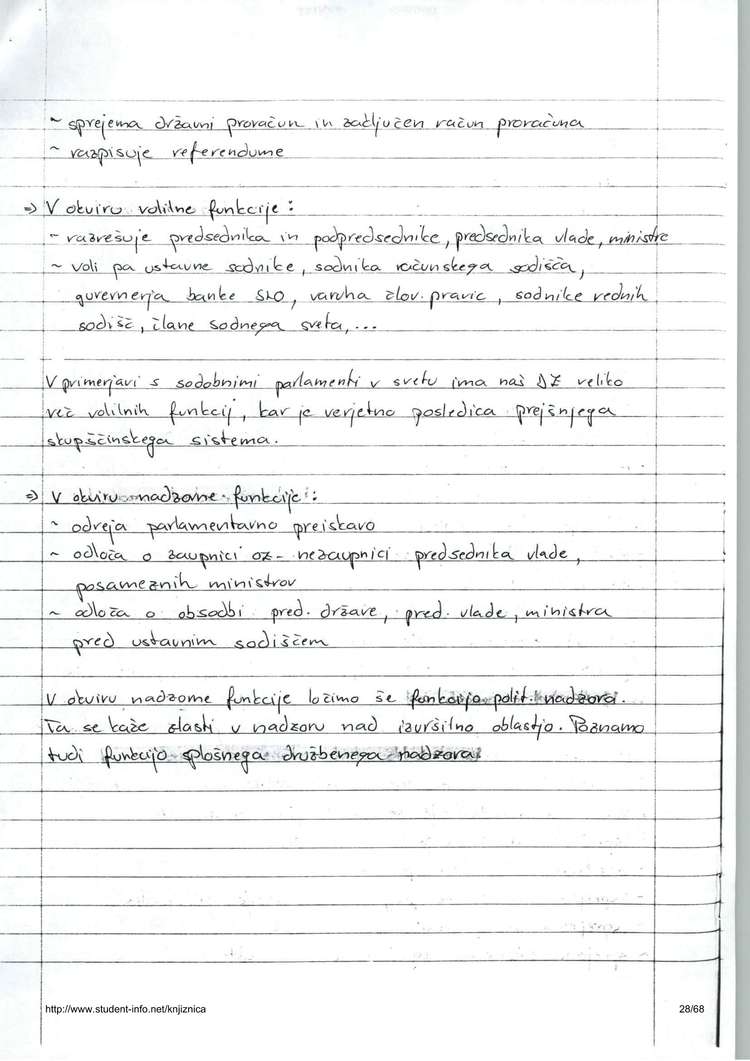 ~ sprejema državni proračun in zaključen račun proračuna
~ razpisuje referendume
=> V okviru volilne funkcije :
~ razrešuje predsednika in podpredsednike, predsednika vlade, ministre
~ voli pa ustavne sodnike, sodnika računskega sodišča,
guvernerja banke SLO, varuha člov. pravic, sodnike rednih
sodišč, člane sodnega sveta, ...
V primerjavi s sodobnimi parlamenti v svetu ima naš DZ veliko
več volilnih funkcij, kar je verjetno posledica prejšnjega
skupščinskega sistema.
=> V okviru nadzorne funkcije :
~ odreja parlamentarno preiskavo
~ odloča o zaupnici oz. nezaupnici predsednika vlade,
posameznih ministrov
~ odloča o obsodbi pred. države, pred. vlade, ministra
pred ustavnim sodiščem
V okviru nadzorne funkcije ločimo še funkcijo polit. nadzora.
Ta se kaže zlasti v nadzoru nad izvršilno oblastjo. Poznamo
tudi funkcijo splošnega družbenega nadzora.
http://www.student-info.net/knjiznica
28/68